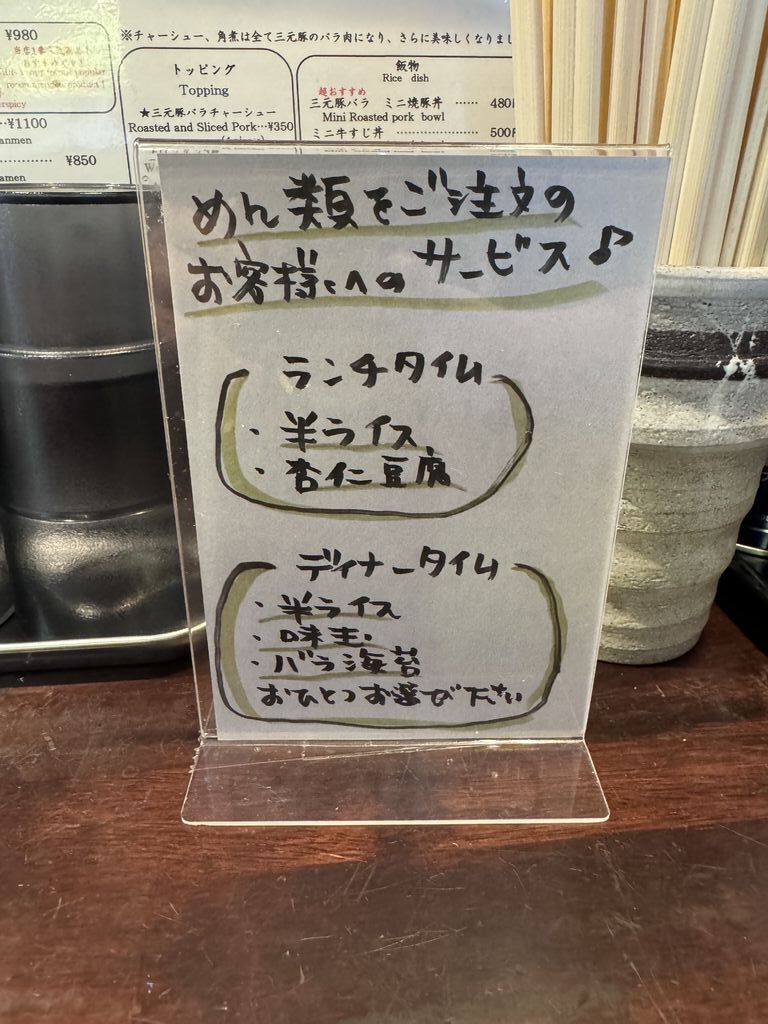 ¥980
¥1100
anmen
¥850
amen
※チャーシュー、角煮は全て三元豚のバラ肉になり、さらに美味しくなりま
トッピング
Topping
★三元豚バラチャーシュー
Roasted and Sliced Pork…¥350
飯物
Rice dish
超おすすめ
三元豚バラ ミニ焼豚丼 …… 480
Mini Roasted pork bowl
ミニ牛すじ丼 ……………… 500
めん類をご注文の
お客様へのサービス♪
ランチタイム
・半ライス
・杏仁豆腐
ディナータイム
・半ライス
・味玉
・バラ海苔
おひとつお選び下さい